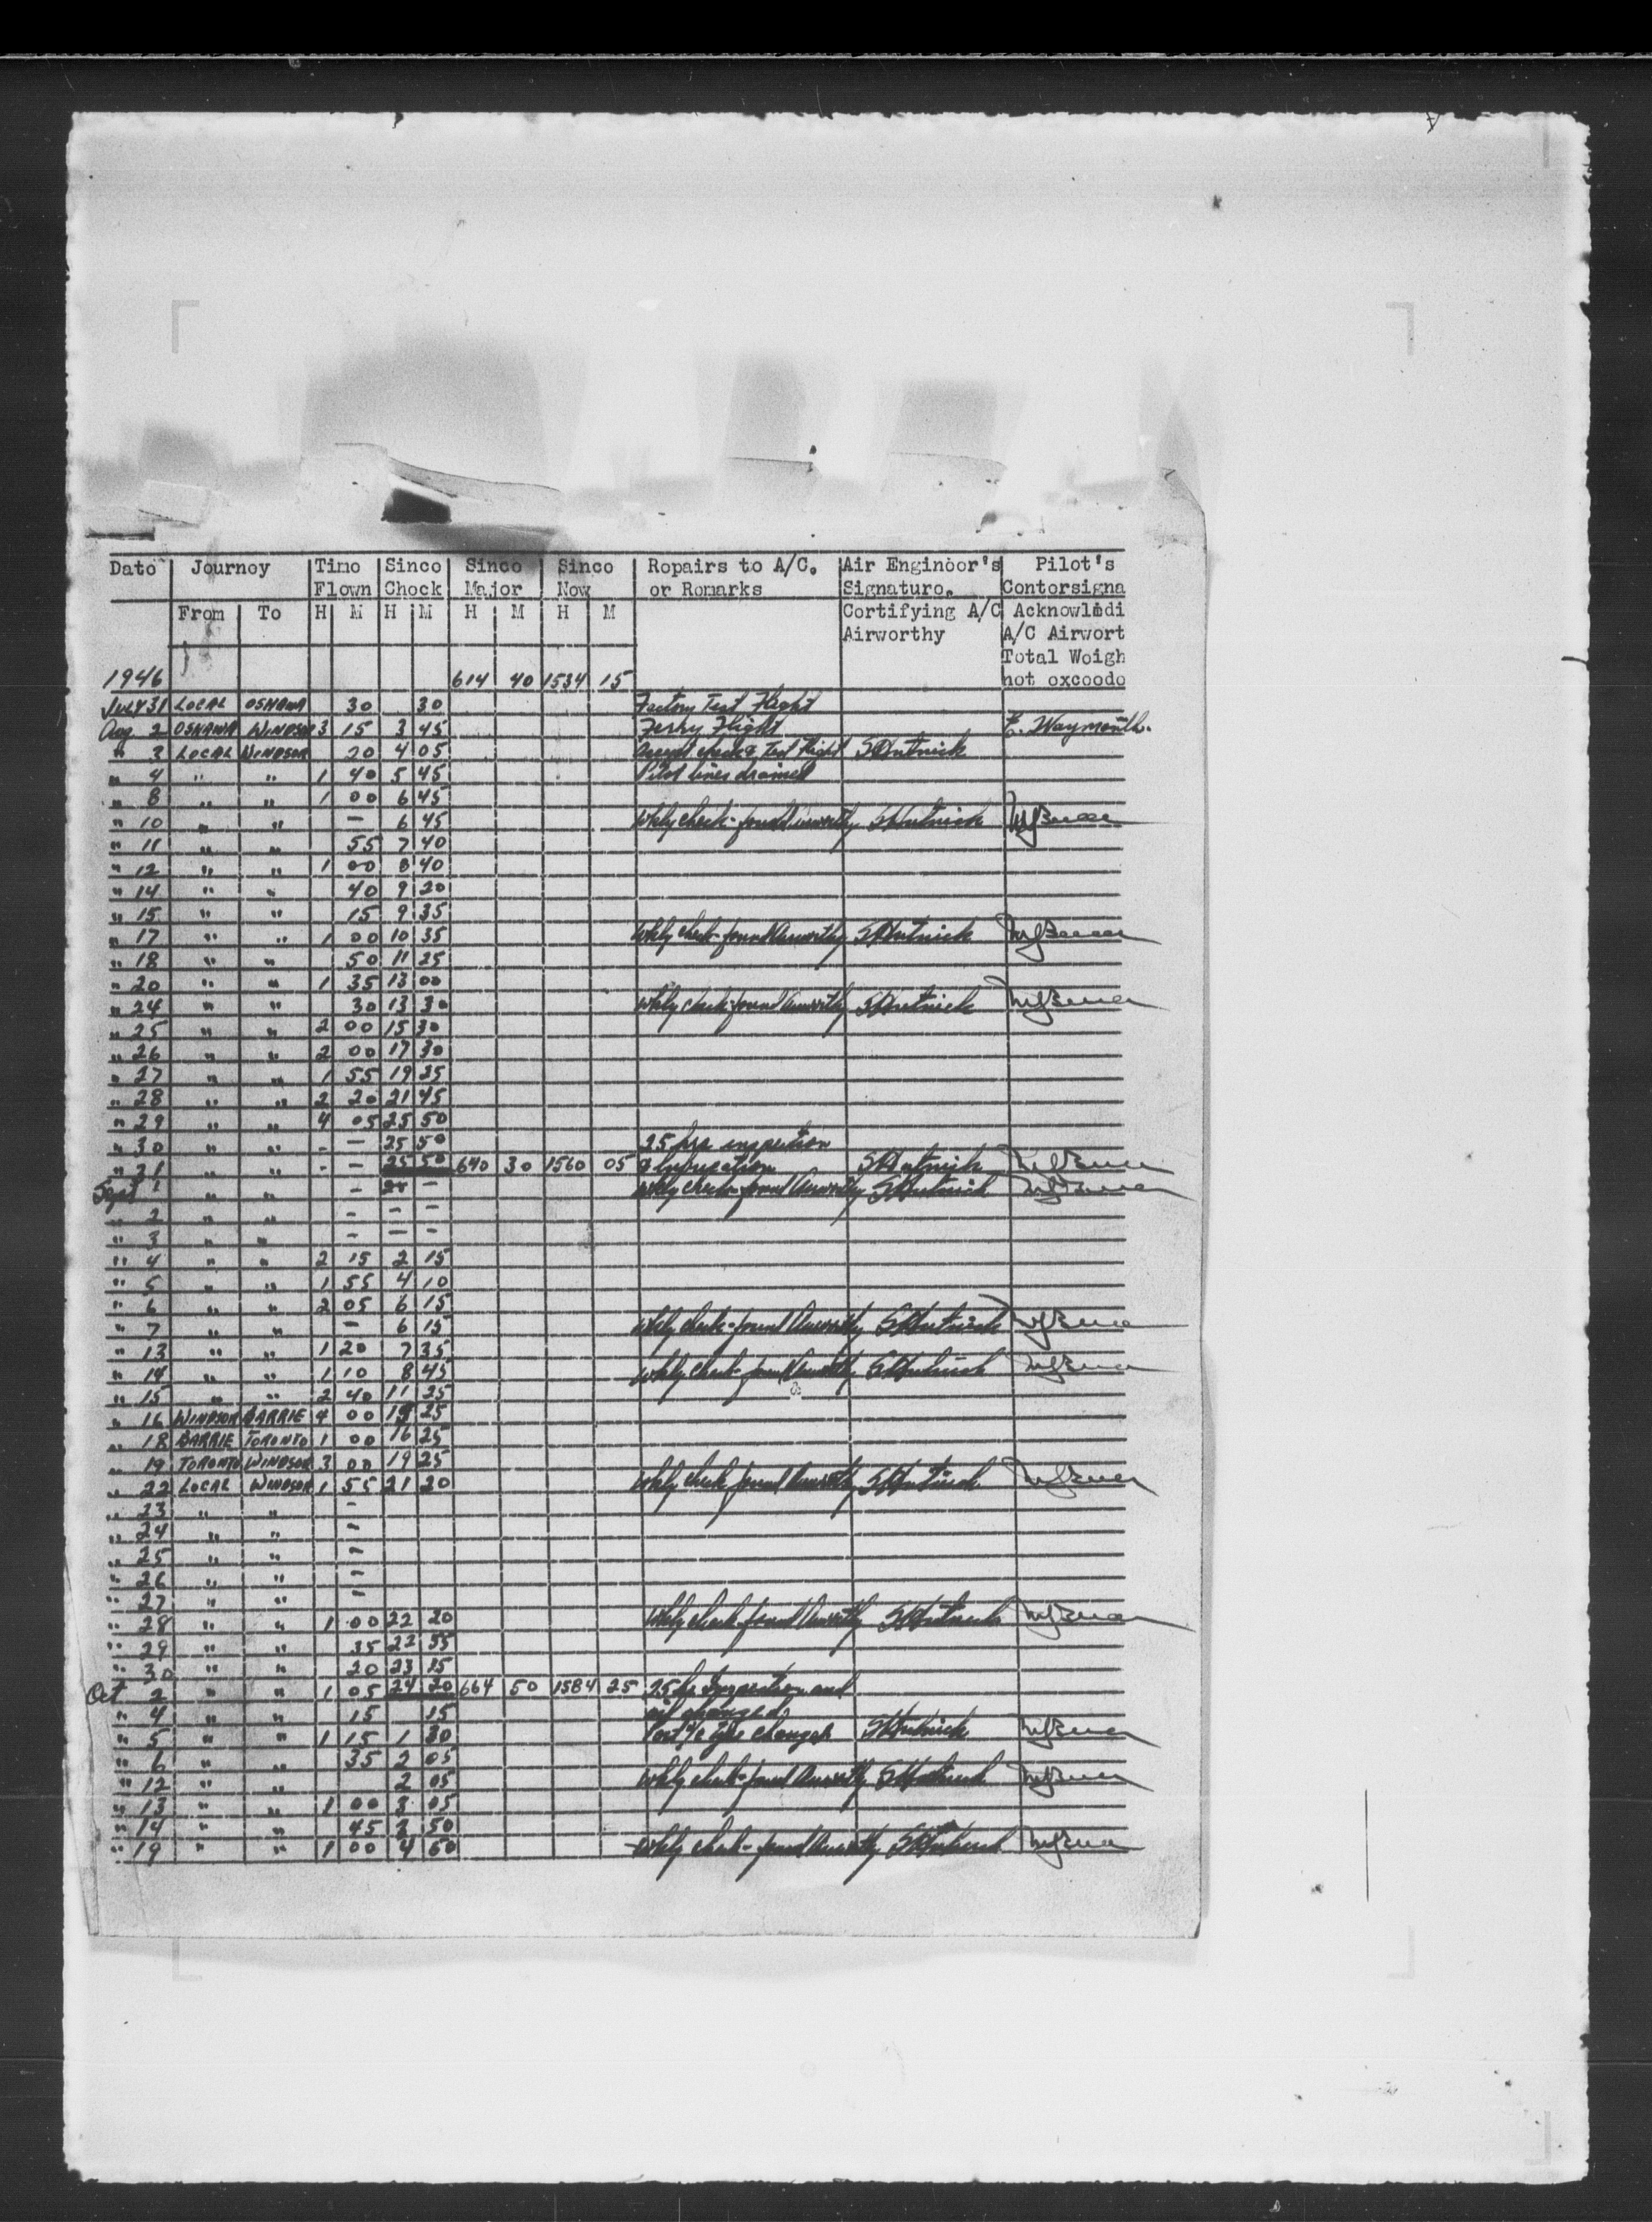 Dato Journoy Timo Sinco Sinco Sinco Ropairs to A/C. Air Enginoor's Pilot's
Flown Chock Major Now or Romarks Signaturo. Contorsigna
From To H M H M H M H M Cortifying A/C Acknowlodi
Airworthy A/C Airwort
Total Woigh
1946 614 40 1534 15 not oxcoodo
JULY 31 LOCAL OSHAWA 30 30 Factory Test Flight
Aug 2 OSHAWA WINDSOR 3 15 3 45 Ferry Flight E. Waymouth.
" 3 LOCAL WINDSOR 20 4 05 Accept check & Test Flight SHutnick
" 4 " " 1 40 5 45 Pitot lines drained
" 8 " " 1 00 6 45
" 10 " " — 6 45 Wkly check - found airworthy SHutnick
" 11 " " 55 7 40
" 12 " " 1 00 8 40
" 14 " " 40 9 20
" 15 " " 15 9 35
" 17 " " 1 00 10 35 Wkly check - found Airworthy SHutnick
" 18 " " 50 11 25
" 20 " " 1 35 13 00
" 24 " " 30 13 30 Wkly check - found Airworthy SHutnick
" 25 " " 2 00 15 30
" 26 " " 2 00 17 30
" 27 " " 1 55 19 25
" 28 " " 2 20 21 45
" 29 " " 4 05 25 50
" 30 " " - — 25 50 25 hrs inspection
" 31 " " - — 25 50 640 30 1560 05 & lubrication SHutnick
Sept 1 " " — — Wkly check - found Airworthy SHutnick
" 2 " " — — —
" 3 " " — — —
" 4 " " 2 15 2 15
" 5 " " 1 55 4 10
" 6 " " 2 05 6 15
" 7 " " — 6 15 Wkly check - found Airworthy SHutnick
" 13 " " 1 20 7 35
" 14 " " 1 10 8 45 Wkly check - found Airworthy SHutnick
" 15 " " 2 40 11 25
" 16 WINDSOR BARRIE 4 00 15 25
" 18 BARRIE TORONTO 1 00 16 25
" 19 TORONTO WINDSOR 3 00 19 25
" 22 LOCAL WINDSOR 1 55 21 20 Wkly check found Airworthy SHutnick
" 23 " " —
" 24 " " —
" 25 " " —
" 26 " " —
" 27 " " —
" 28 " " 1 00 22 20 Wkly check found Airworthy SHutnick
" 29 " " 35 22 55
" 30 " " 20 23 15
Oct 2 " " 1 05 24 20 664 50 1584 25 25 hr Inspection and
" 4 " " 15 15 oil changed
" 5 " " 1 15 1 30 Port tyre changed SHutnick
" 6 " " 35 2 05
" 12 " " 2 05 Wkly check - found Airworthy SHutnick
" 13 " " 1 00 3 05
" 14 " " 45 3 50
" 19 " " 1 00 4 50 Wkly check - found Airworthy SHutnick